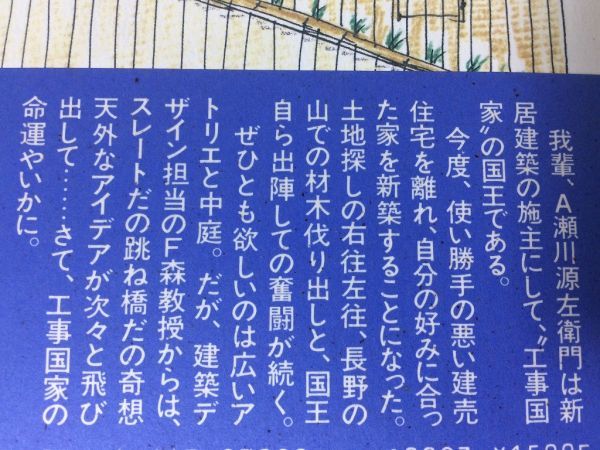 我輩、A瀬川源左衛門は新
居建築の施主にして、〝工事国
家〟の国王である。
今度、使い勝手の悪い建売
住宅を離れ、自分の好みに合っ
た家を新築することになった。
土地探しの右往左往、長野の
山での材木伐り出しと、国王
自ら出陣しての奮闘が続く。
ぜひとも欲しいのは広いア
トリエと中庭。だが、建築デ
ザイン担当のF森教授からは、
スレートだの跳ね橋だの奇想
天外なアイデアが次々と飛び
出して……さて、工事国家の
命運やいかに。